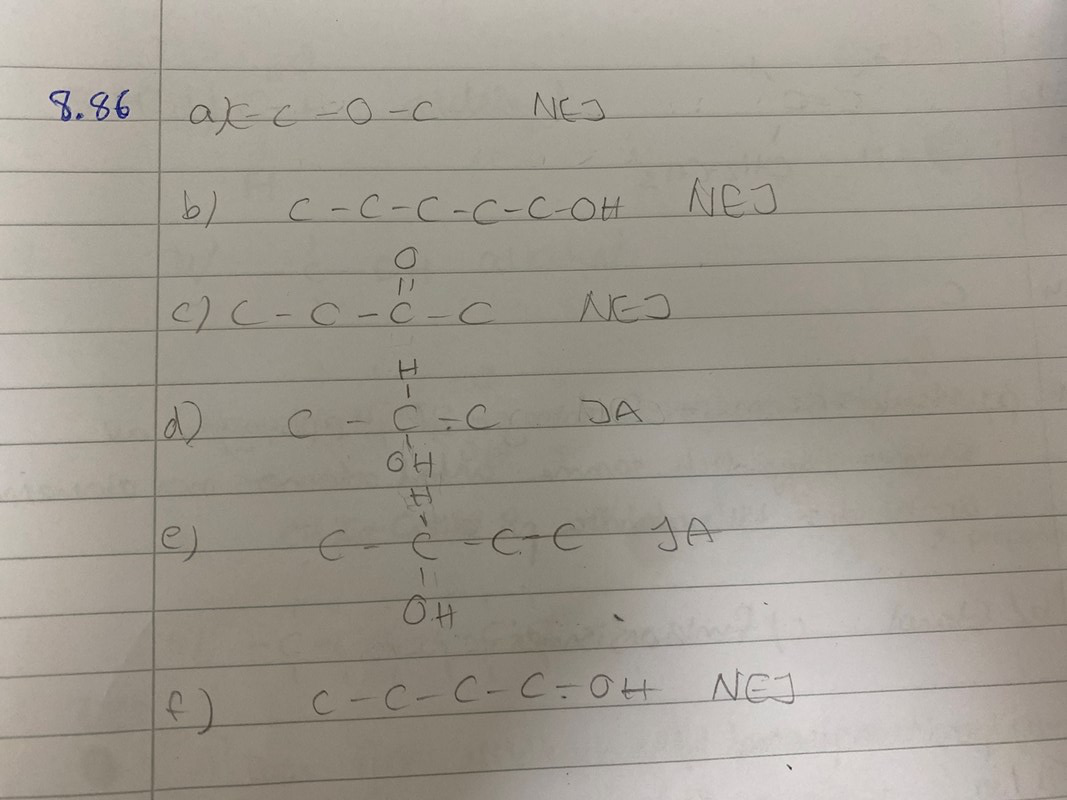 8.86 a) C - C - O - C NEJ
b) C - C - C - C - C - OH NEJ
O
||
c) C - C - C - C NEJ
H
|
d) C - C - C JA
|
OH
H
|
e) C - C - C - C JA
||
OH
f) C - C - C - C - OH NEJ